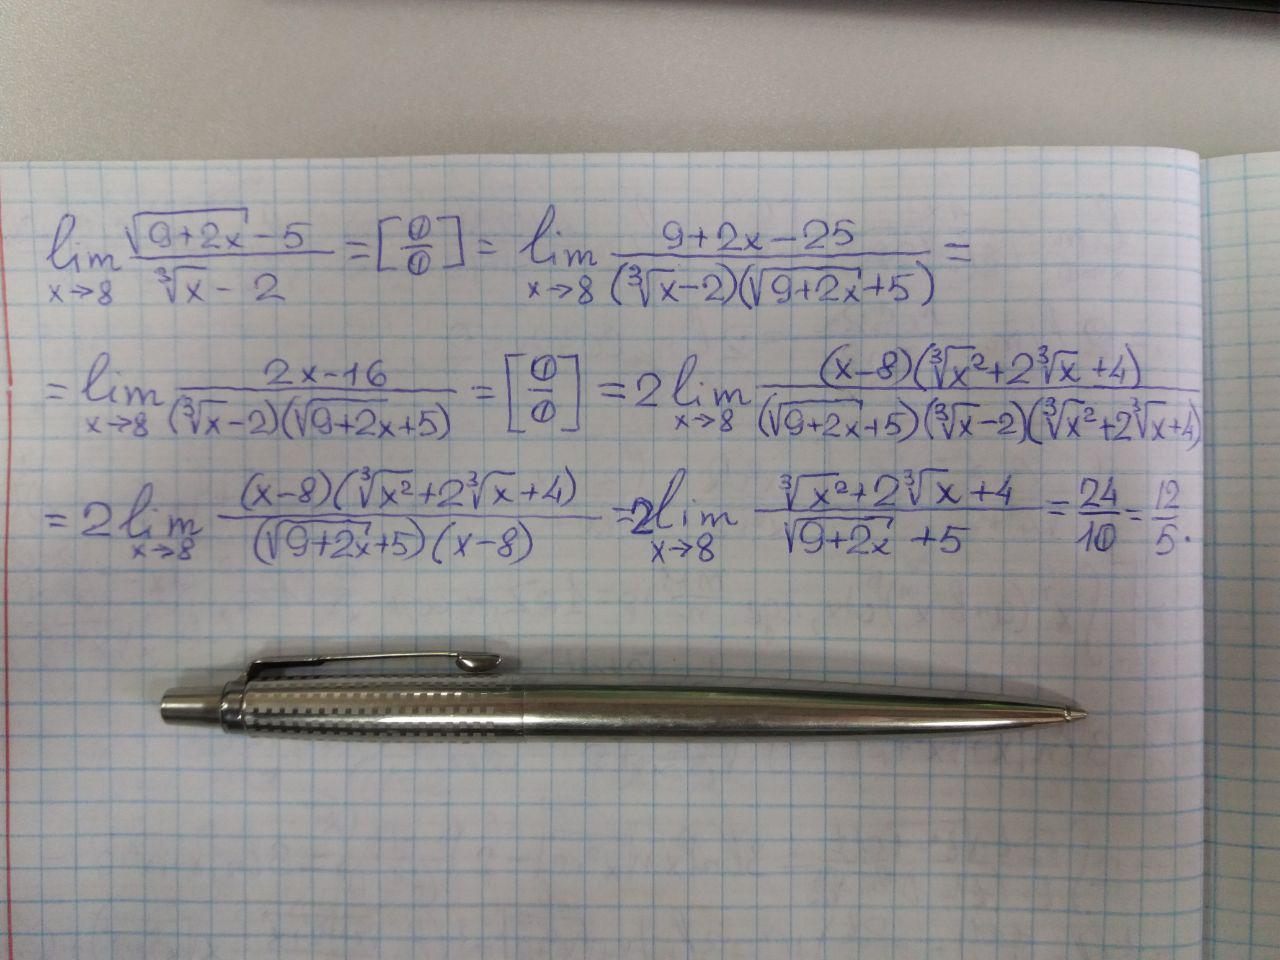 lim x→8 (√(9+2x) - 5)/(∛x - 2) = [0/0] = lim x→8 (9+2x-25)/((∛x-2)(√(9+2x)+5)) =
= lim x→8 (2x-16)/((∛x-2)(√(9+2x)+5)) = [0/0] = 2 lim x→8 ((x-8)(∛x²+2∛x+4))/((√(9+2x)+5)(∛x-2)(∛x²+2∛x+4))
= 2 lim x→8 ((x-8)(∛x²+2∛x+4))/((√(9+2x)+5)(x-8)) = 2 lim x→8 (∛x²+2∛x+4)/(√(9+2x)+5) = 24/10 = 12/5.